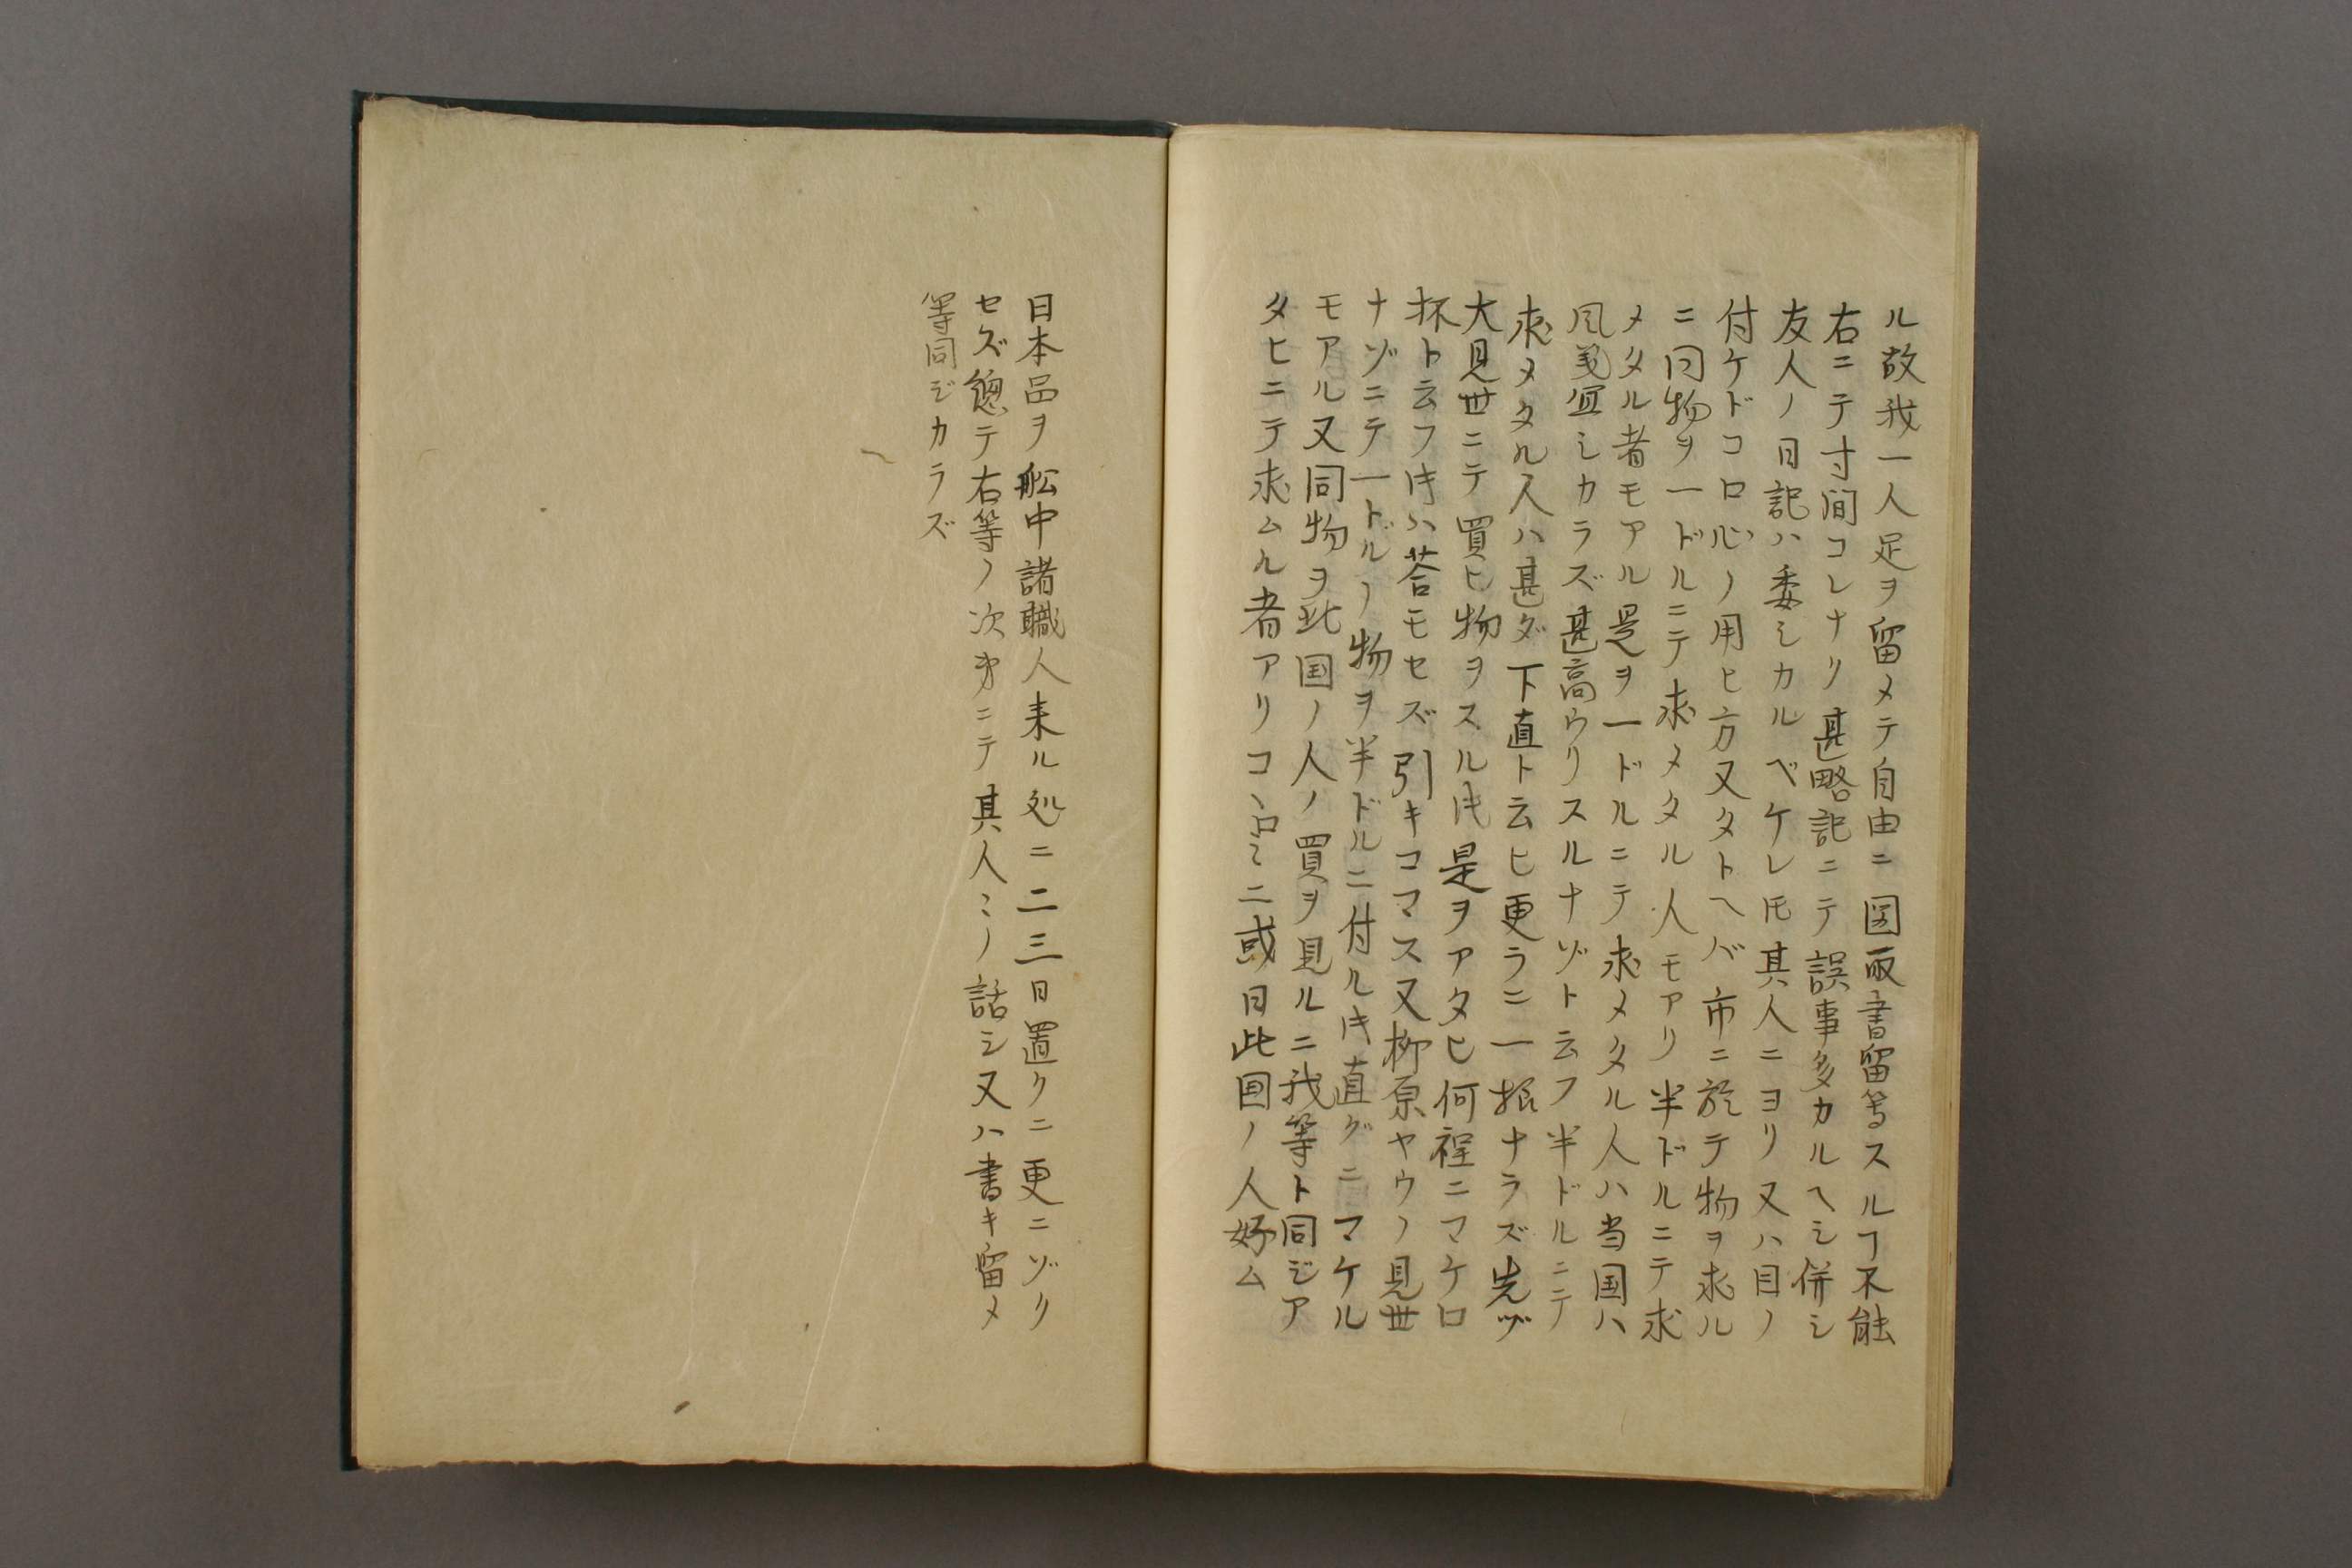 ル故我一人足ヲ留メテ自由ニ図取書留等スルヿ不能
右ニテ寸間コレナリ甚略記ニテ誤事多カルヘシ併シ
友人ノ日記ハ委シカルベケレ𪜈其人ニヨリ又ハ目ノ
付ケドコロ心ノ用ヒ方又タトヘバ市ニ於テ物ヲ求ル
ニ同物ヲ一ドルニテ求メタル人モアリ半ドルニテ求
メタル者モアル是ヲ一ドルニテ求メタル人ハ当国ハ
風義宜シカラズ甚高ウリスルナゾト云フ半ドルニテ
求メタル人ハ甚ダ下直ト云ヒ更ラニ一振ナラズ先ヅ
大見世ニテ買ヒ物ヲスル𪜈是ヲアタヒ何程ニマケロ
抔ト云フ𬼀ハ荅モセズ引キコマス又柳原ヤウノ見世
ナゾニテ一ドルノ物ヲ半ドルニ付ル𬼀直グニマケル
モアル又同物ヲ此国ノ人ノ買ヲ見ルニ我等ト同ジア
タヒニテ求ムル者アリコヽロミニ或日此国ノ人好ム
日本品ヲ舩中諸職人来ル処ニ二三日置クニ更ニゾク
セズ惣テ右等ノ次第ニテ其人〻ノ話シ又ハ書キ留メ
等同ジカラズ